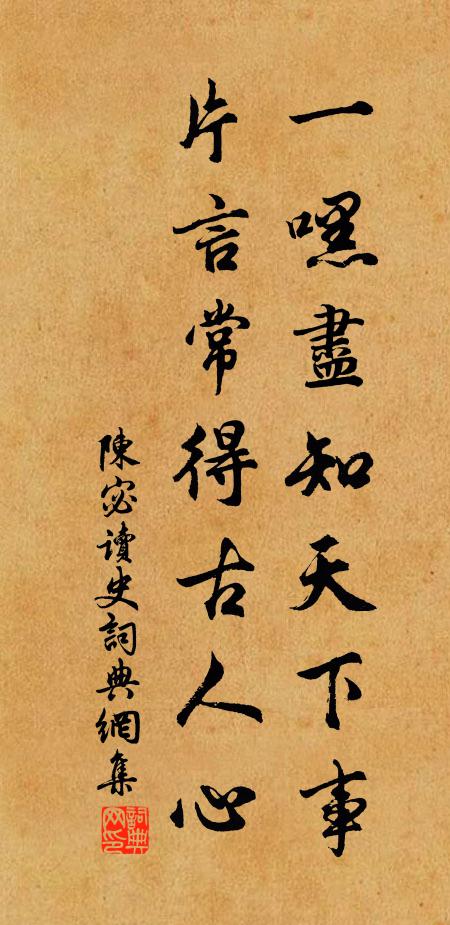 一嘿盡知天下事
片言常得古人心
陳宓讀史詞典網集
詞典網印